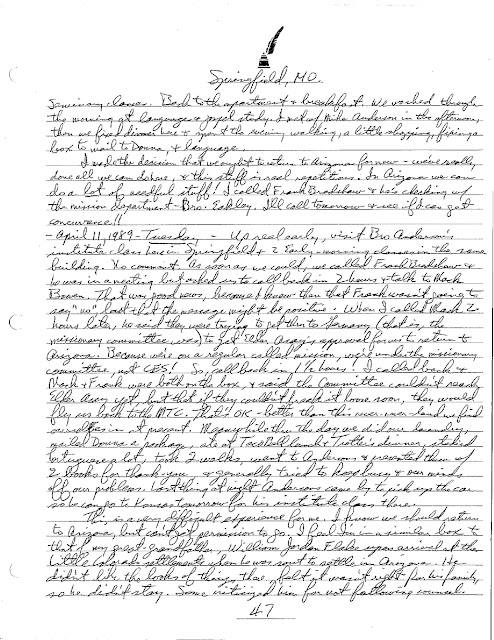 Springfield, MO.
Seminary classes. Back to the apartment & breakfast. We worked through
the morning at language & gospel study. I met w/ Mike Anderson in the afternoon,
then we fixed dinner here & spent the evening walking, a little shopping, fixing a
box to mail to Donna, & language.
I made the decision that we ought to return to Arizona for now - we've really
done all we can do here, & this stuff is real repetitious. In Arizona we can
do a lot of needful stuff! I called Frank Bradshaw & he's checking w/
the mission department - Bro. Eakley. I'll call tomorrow & see if I can get
concurrence!!
- April 11, 1989 - Tuesday - Up real early, visit Bro Anderson's
institute class here in Springfield & 2 Early-morning classes in the same
building. No comment. As soon as we could, we called Frank Bradshaw &
he was in a meeting but asked us to call back in 2 hours & talk to Mack
Bowen. That was good news, because I knew then that Frank wasn't going to
say "no" but that the message might be positive. When I called Mack 2
hours later, he said they were trying to get thru to Germany (that is, the
missionary committee, was) to get Elder Asay's approval for us to return to
Arizona. Because we're on a regular called mission, we're under the missionary
committee, not CES! So, call back in 1 1/2 hours! I called back &
Mack & Frank were both on the box, & said the Committee couldn't reach
Elder Asay yet, but that if they couldn't break it loose soon, they would
fly us back to the MTC. That's OK - better than this never-never land we find
ourselves in at present. Meanwhile thru the day we did our laundry,
mailed Donna a package, ate at Taco Bell lunch & Trotter's dinner, studied
Portuguese a lot, took 2 walks, went to Andersons & presented them w/
2 books for thank-you & generally tried to keep busy & our minds
off our problems. Last thing at night Andersons came by to pick up the car
so he can go to Kansas tomorrow for his institute class there.
This is a very difficult experience for me. I know we should return
to Arizona, but can't get permission to go. I feel I'm in a similar box to
that of my great-grandfather, William Jordan Flake upon arrival at the
Little Colorado settlements when he was sent to settle in Arizona. He
didn't like the looks of things there, felt it wasn't right for his family,
so he didn't stay. Some criticized him for not following counsel.
47